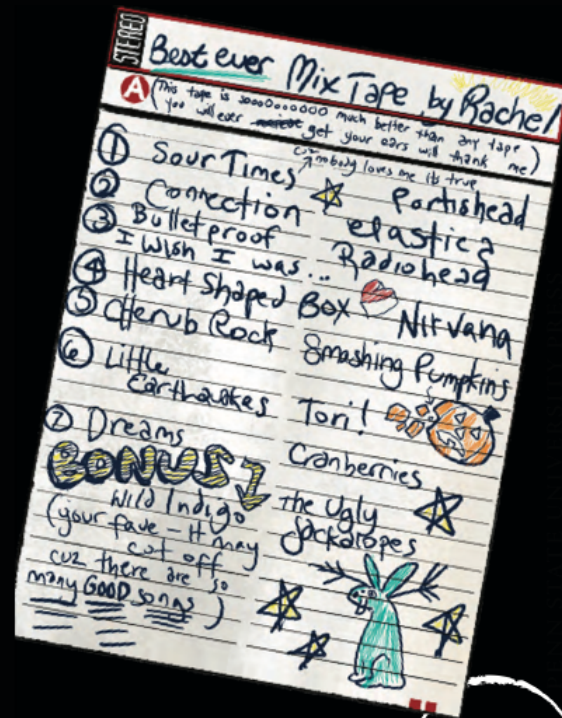 STEREO
Best ever Mix Tape by Rachel
A
(This tape is sooooOOOOOOO much better than any tape
you will ever get your ears will thank me)
cuz nobody loves me its true
1 Sour Times Portishead
2 Connection elastica
3 Bulletproof Radiohead
I wish I was...
4 Heart Shaped Box Nirvana
5 Cherub Rock Smashing Pumpkins
6 Little
Earthquakes Tori!
7 Dreams Cranberries
BONUS
Wild Indigo the Ugly
Jackalopes
(your fave - It may
cut off
cuz there are so
many GOOD songs)